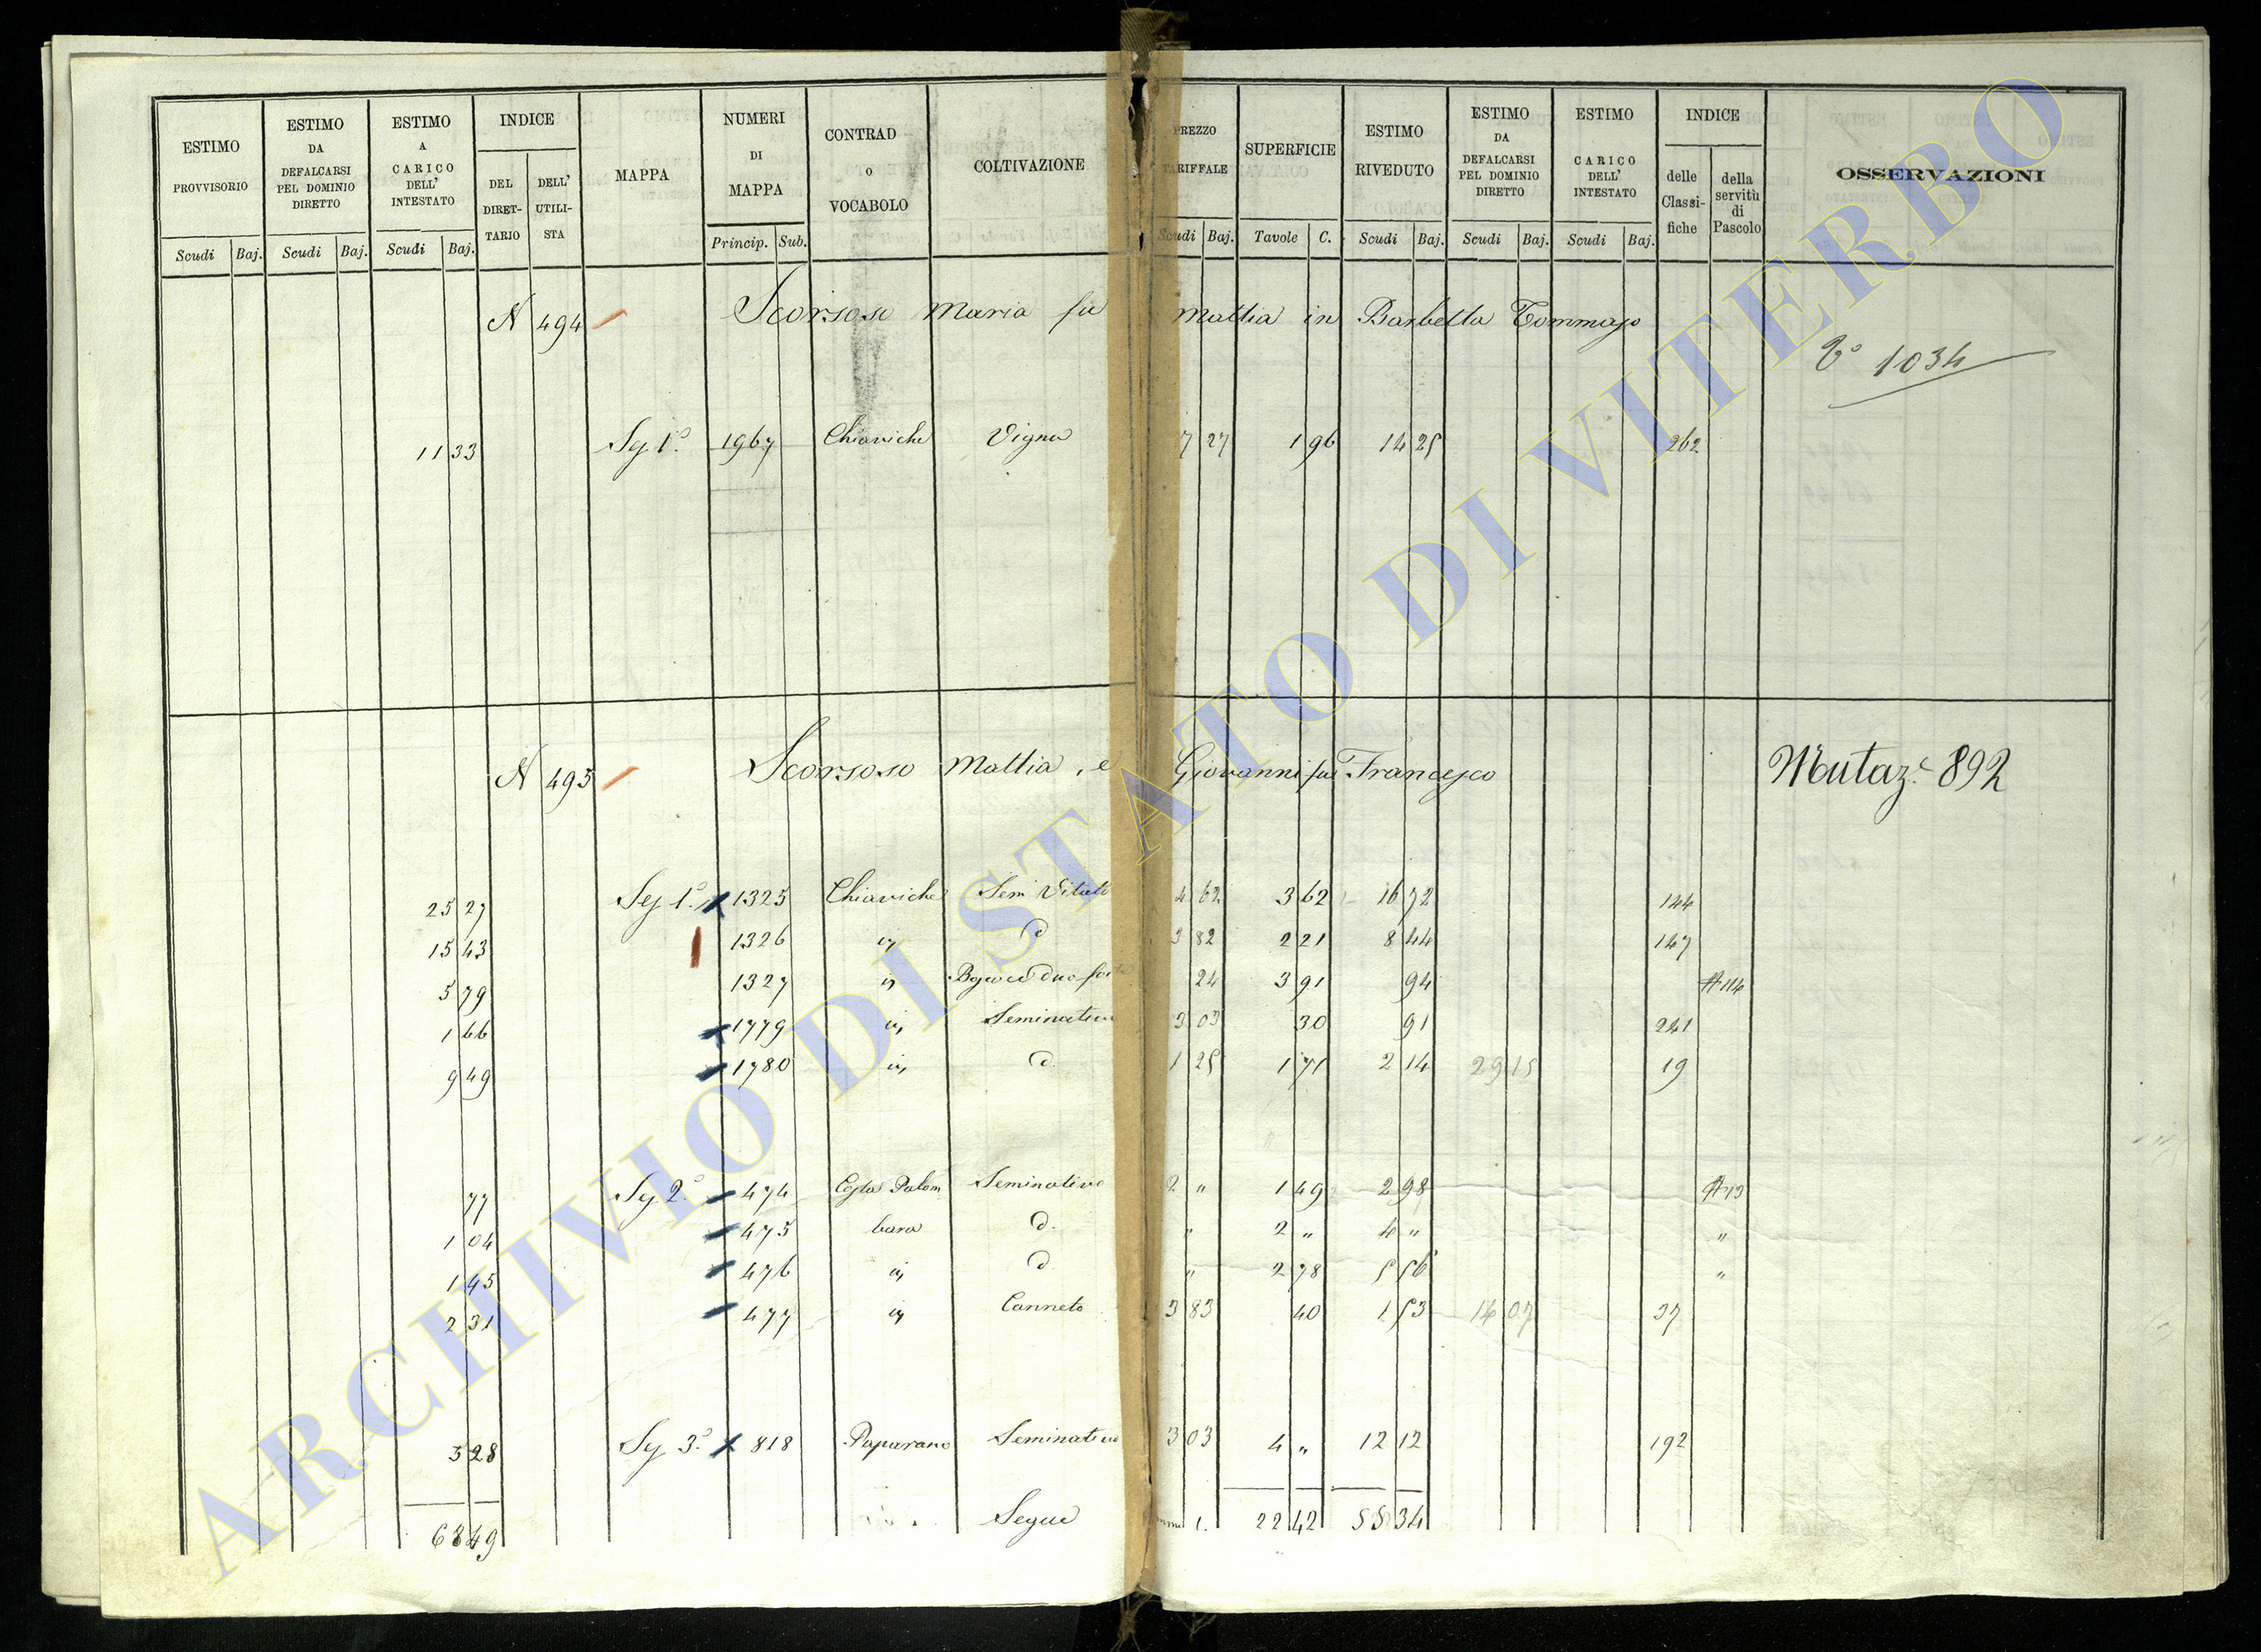 ESTIMO PROVVISORIO
ESTIMO DA DEFALCARSI PEL DOMINIO DIRETTO
ESTIMO A CARICO DELL' INTESTATO
INDICE
DEL DIRETTARIO
DELL' UTILISTA
MAPPA
NUMERI DI MAPPA
CONTRAD o VOCABOLO
COLTIVAZIONE
PREZZO TARIFFALE
SUPERFICIE
ESTIMO RIVEDUTO
ESTIMO DA DEFALCARSI PEL DOMINIO DIRETTO
ESTIMO CARICO DELL' INTESTATO
INDICE
delle Classifiche
della servitù di Pascolo
OSSERVAZIONI
Scudi Baj. Scudi Baj. Scudi Baj. Princip. Sub. Scudi Baj. Tavole C. Scudi Baj. Scudi Baj. Scudi Baj.
N 494 Scorsoso Maria fu Mattia in Barbetta Tommaso
1034
11 33 Sez 1ª 1967 Chiaviche Vigna 7 27 1 96 14 25 262
N 495 Scorsoso Mattia, e Giovanni fu Francesco Mutaz.e 892
25 27 Sez 1ª 1325 Chiaviche Sem Vitato 4 62 3 62 16 72 144
15 43 1326 d 3 82 2 21 8 44 147
5 79 1327 24 3 91 94 114
1 66 1779 Seminativo 3 03 30 91 241
9 49 1780 d. 1 25 1 71 2 14 29 15 19
77 Sez 2ª 474 Costa Palom Seminativo 2 " 1 49 2 98 13
1 04 475 bara d. " 2 " 4 " "
1 45 476 d. " 2 78 5 56 "
2 31 477 Canneto 3 83 40 1 53 14 07 37
5 28 Sez 3ª 818 Paparano Seminativo 3 03 4 " 12 12 192
68 49 Segue 22 42 55 34
ARCHIVIO DI STATO DI VITERBO